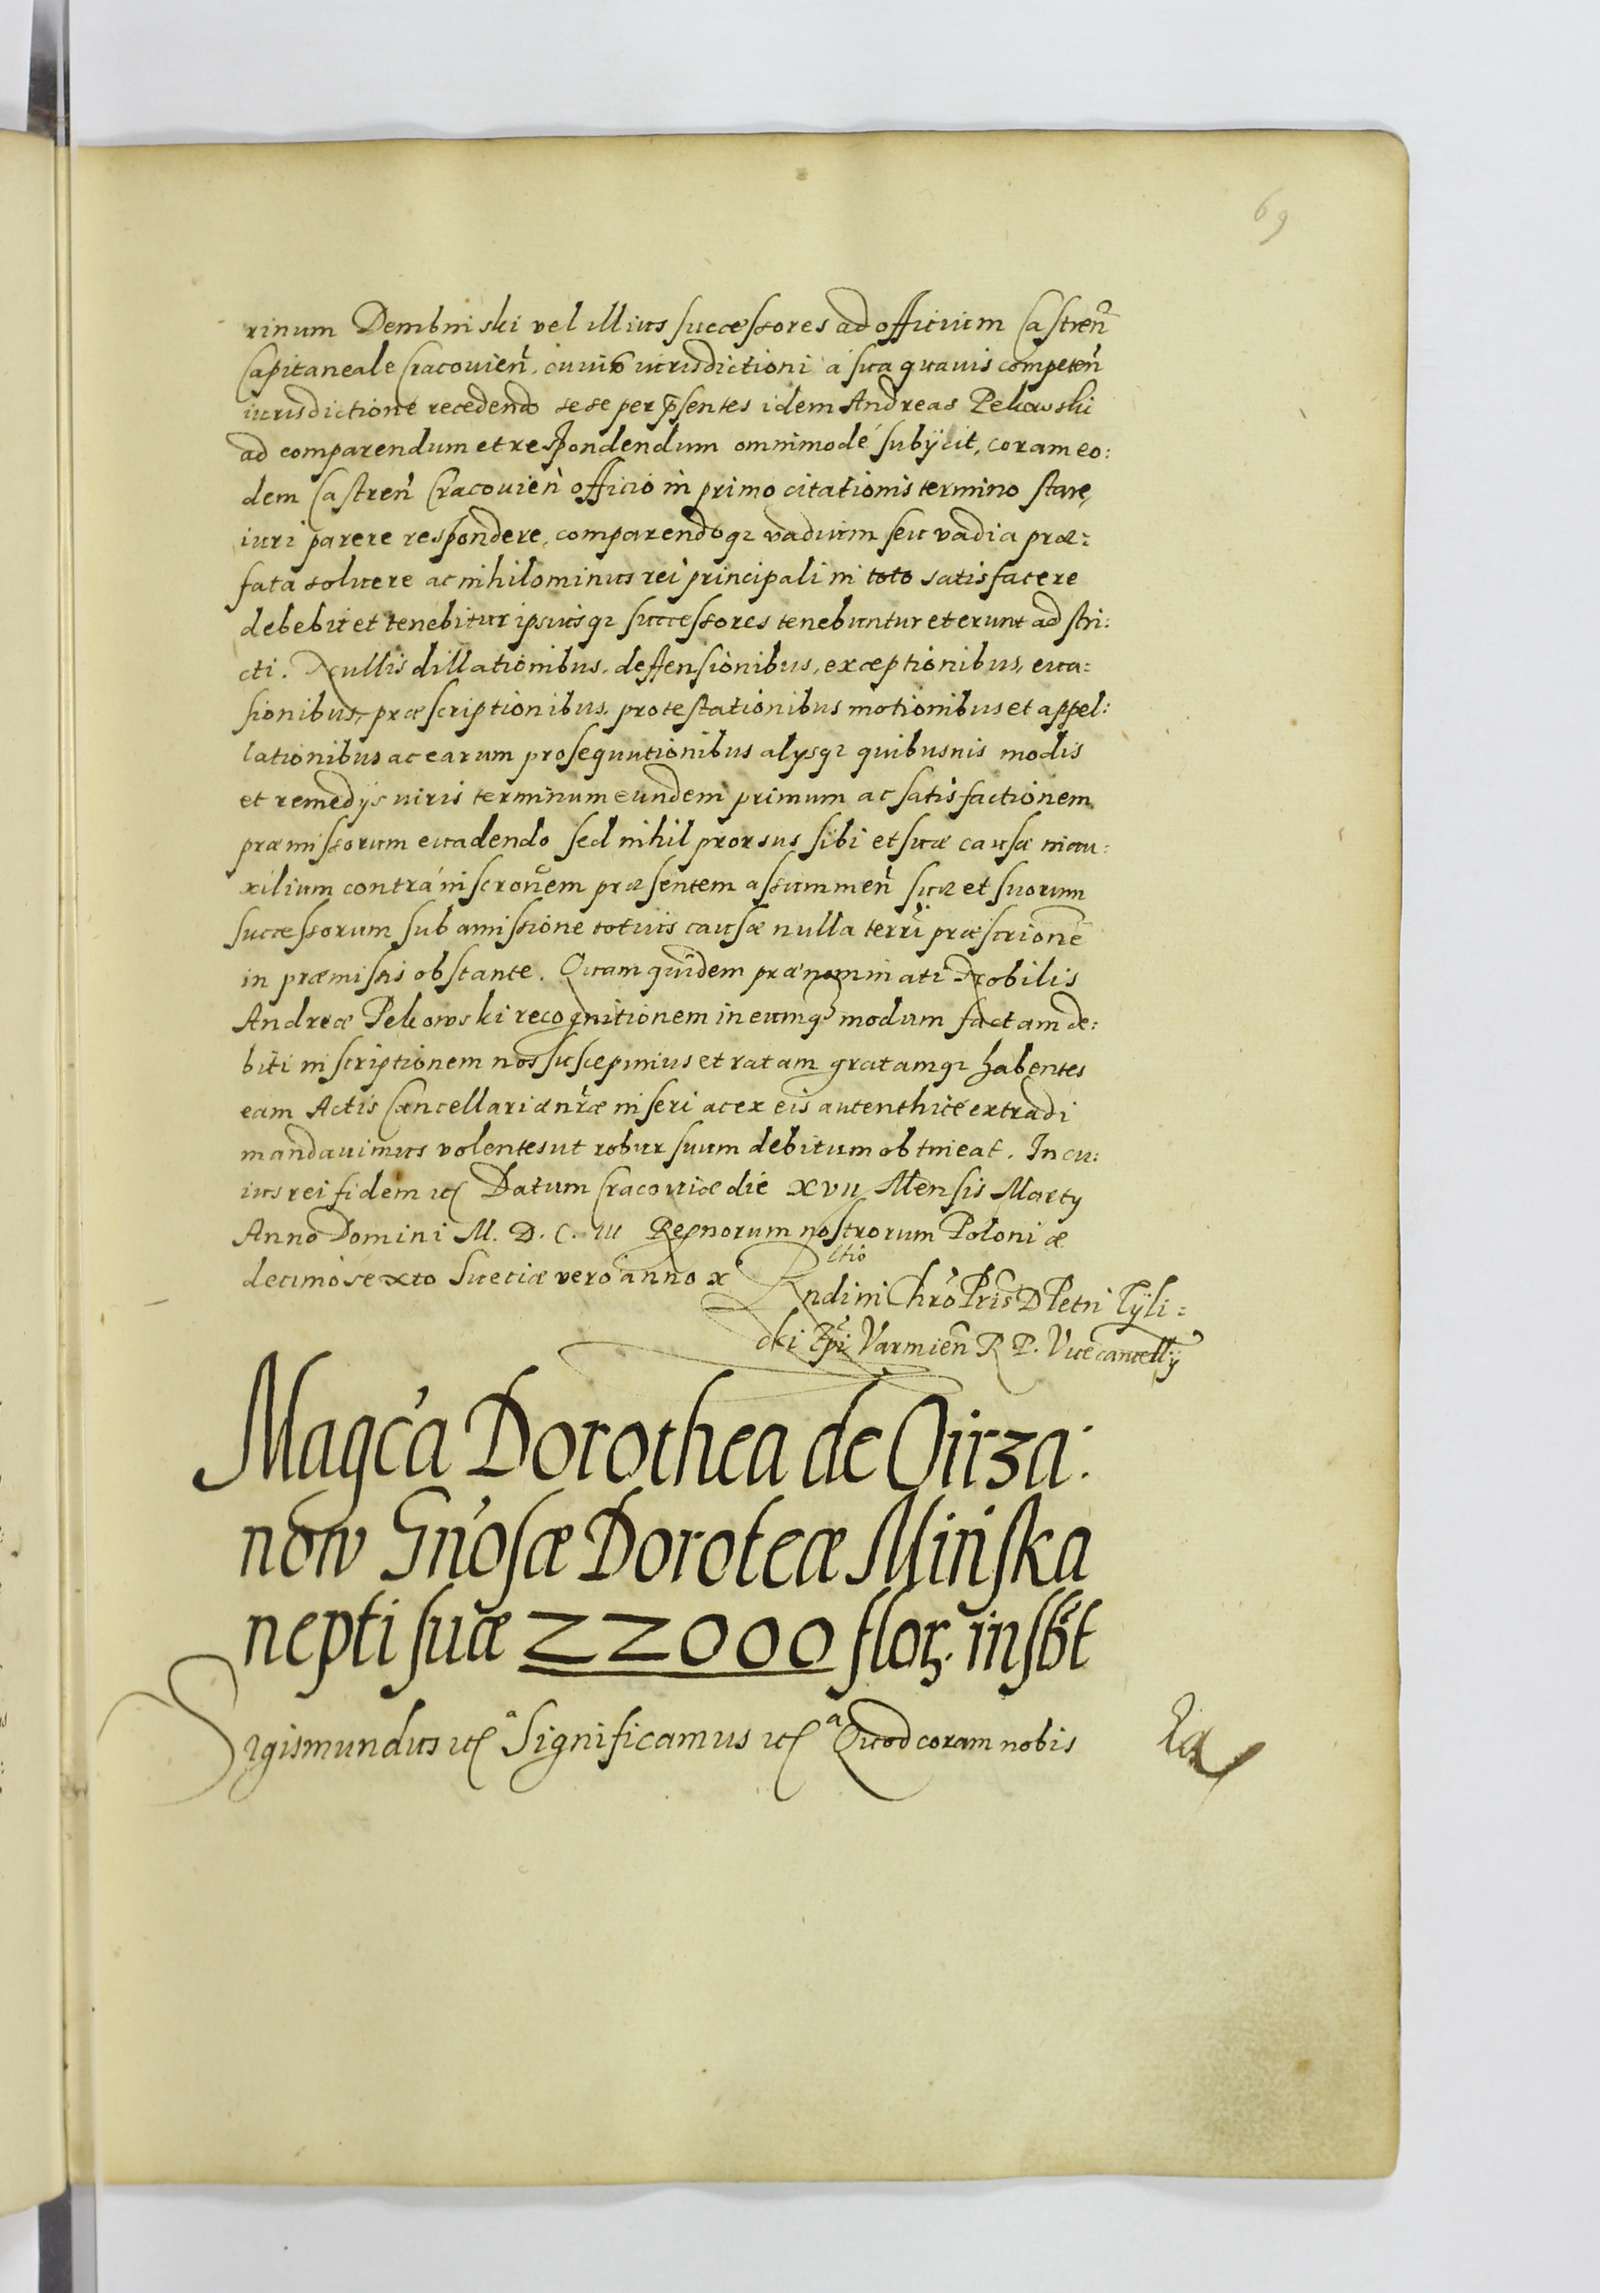 69
rinum Dembinski vel illius successores ad officium Castren̄
Capitaneale Cracouien̄, cuius iurisdictioni a sua quauis competen̄
iurisdictione recedendo sese per p̄sentes idem Andreas Pekowski
ad comparendum et respondendum omnimodè subÿcit, coram eo:
dem Castren̄ Cracouien̄ officio in primo citationis termino stare,
iuri parere respondere, comparendoq₃ vadium seu vadia præ:
fata soluere ac nihilominus rei principali in toto satisfacere
debebit et tenebitur ipsiusq₃ successores tenebuntur et erunt adstri:
cti. Nullis dillationibus, deffensionibus, exceptionibus, eua:
sionibus, præscriptionibus, protestationibus motionibus et appel:
lationibus ac earum prosequutionibus alysq₃ quibusuis modis
et remedÿs iuris terminum eundem primum ac satisfactionem
præmissorum euadendo sed nihil prorsus sibi et suæ causæ in au:
xilium contrà inscrōnem præsentem assummen̄ suæ et suorum
successorum sub amissione totius causæ nulla terrī præscrionē
in præmissis obstante. Quam quidem prænominati Nobilis
Andreæ Pekowski recognitionem in eumq₃ modum factam de:
biti inscriptionem nos suscepimus et ratam gratamq₃ habentes
eam Actis Cancellariæ nr̄æ inseri ac ex eis autenthicè extradi
mandauimus volentes ut robur suum debitum obtineat. In cu:
ius rei fidem etc Datum Cracouiæ die XVII Mensis Marty
Anno Domini M. D. C. III Regnorum nostrorum Poloniæ
decimosexto Sueciæ vero anno x
Rltio
Rndi in Chrō Pr̄is D Petri Tÿli:
cki Ep̄i Varmien̄ R P. Vicecancellÿ
Magc̄a Dorothea de Oirza:
now Gn̄osæ Doroteæ Mińska
nepti suæ 22000 flor. insbt
Sigismundus etc ᵃ Significamus etc ᵃ Quod coram nobis